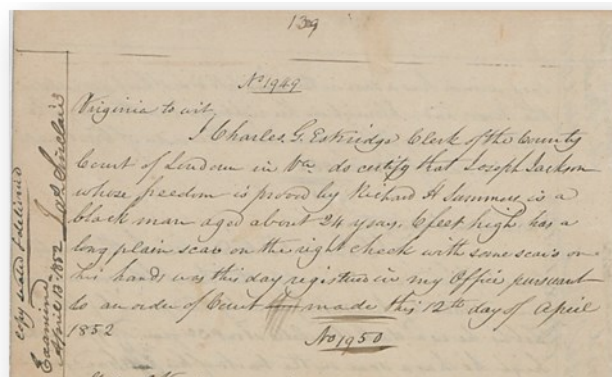 139
No 1949
Virginia to wit
I Charles G. Eskridge Clerk of the County
Court of Loudoun in Va. do certify that Joseph Jackson
whose freedom is proved by Richard H Summers is a
black man aged about 24 years, 6 feet high has a
long plain scar on the right cheek with some scars on
his hands was this day registered in my Office pursuant
to an order of Court made this 12th day of April
1852
No 1950
copy sealed & delivered
Examined
April 13 1852 Sinclair